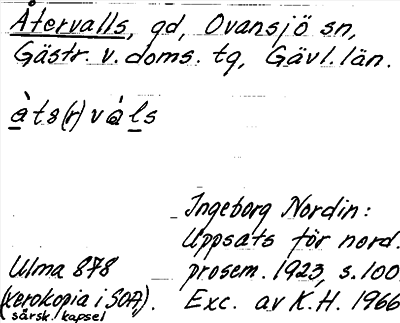 Återvalls, gd, Ovansjö sn,
Gästr. v. doms. tg, Gävl. län.
àts(r)vàls
Ingeborg Nordin:
Uppsats för nord.
Ulma 878 prosem. 1923, s. 100.
(xerokopia i SOA). Exc. av K.H. 1966
särsk. kapsel